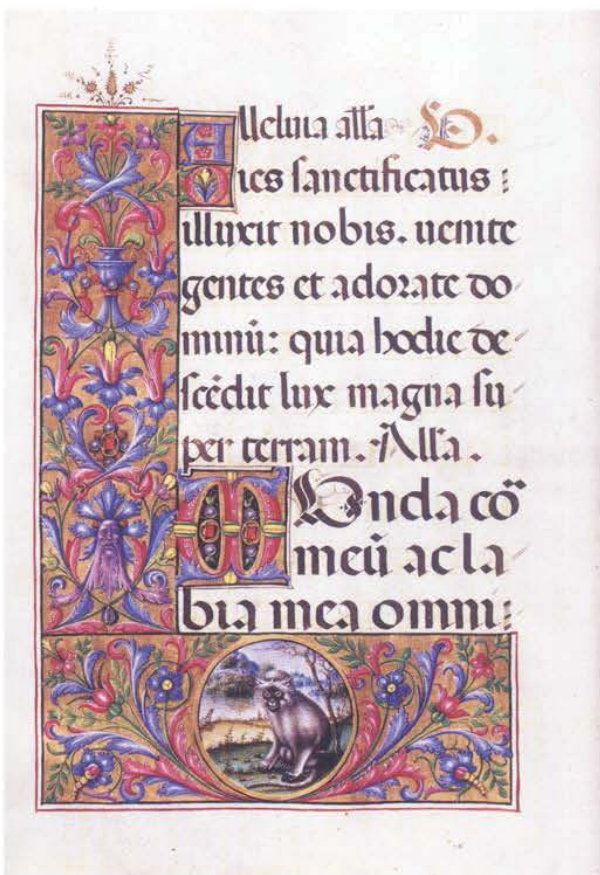 Alleluia all̃a V.
Dies sanctificatus :
illuxit nobis. uenite
gentes et adorate do
minũ: quia hodie de
scẽdit lux magna su
per terram. All̃a.
Munda cõ
meũ ac la
bia mea omni: